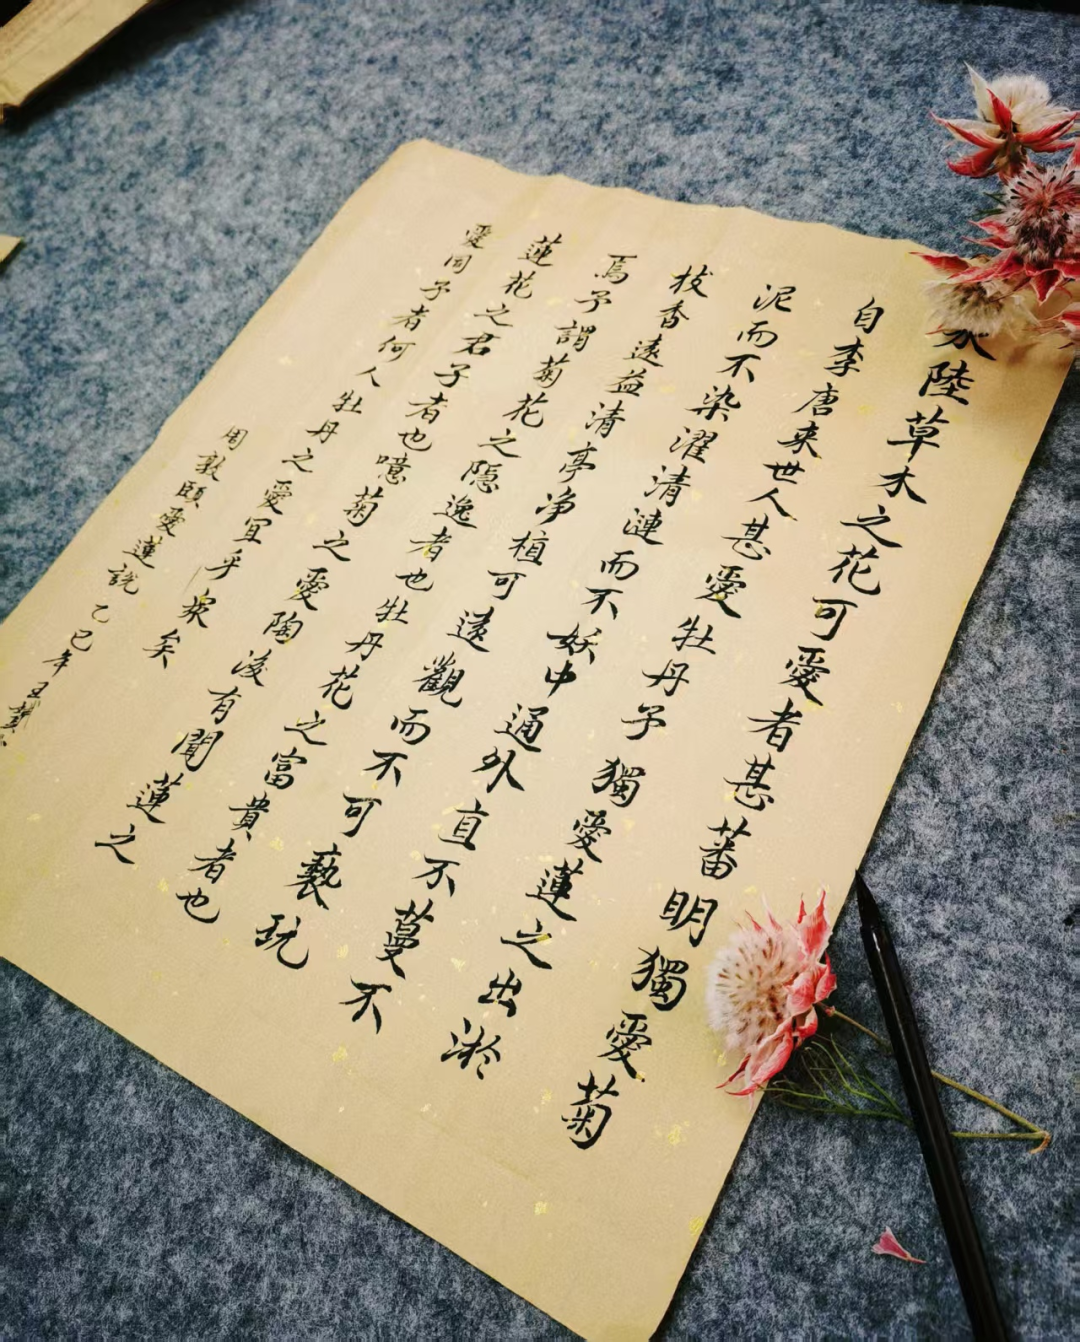 水陸草木之花可愛者甚蕃明獨愛菊
自李唐来世人甚愛牡丹予獨愛蓮之出淤
泥而不染濯清漣而不妖中通外直不蔓不
枝香遠益清亭净植可遠觀而不可褻玩
焉予謂菊花之隐逸者也牡丹花之富貴者也
蓮花之君子者也噫菊之愛陶後有聞蓮之
愛同予者何人牡丹之愛宜乎衆矣
周敦頤愛蓮説 乙巳年王